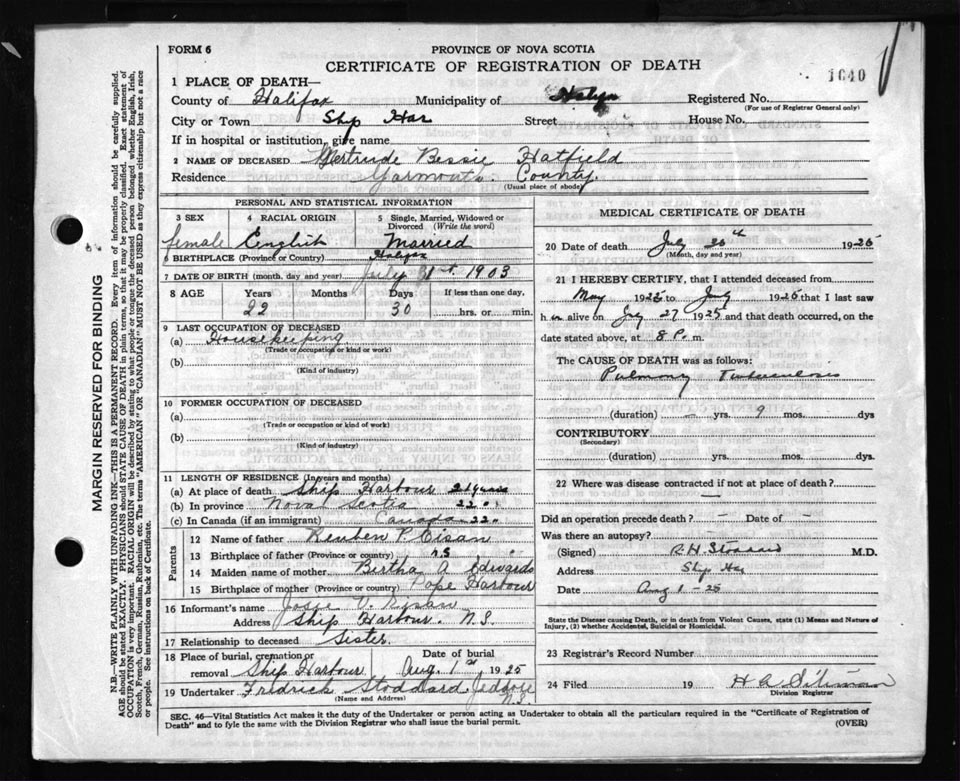 FORM 6
PROVINCE OF NOVA SCOTIA
CERTIFICATE OF REGISTRATION OF DEATH
1040
1 PLACE OF DEATH—
County of Halifax Municipality of Registered No.
(For use of Registrar General only)
City or Town Ship Har Street House No.
If in hospital or institution, give name
2 NAME OF DECEASED Gertrude Bessie Hatfield
Residence Yarmouth County
(Usual place of abode)
PERSONAL AND STATISTICAL INFORMATION
3 SEX 4 RACIAL ORIGIN 5 Single, Married, Widowed or Divorced (Write the word)
female English Married
6 BIRTHPLACE (Province or Country) Halifax
7 DATE OF BIRTH (month, day and year) July 1st 1903
8 AGE Years Months Days If less than one day,
22 30 hrs. or min.
9 LAST OCCUPATION OF DECEASED
(a) Housekeeping
(Trade or occupation or kind or work)
(b)
(Kind of industry)
10 FORMER OCCUPATION OF DECEASED
(a)
(Trade or occupation or kind or work)
(b)
(Kind of industry)
11 LENGTH OF RESIDENCE (In years and months)
(a) At place of death Ship Harbour 21 years
(b) In province Nova Scotia 22
(c) In Canada (if an immigrant) Canada 22
Parents
12 Name of father Reuben P.
13 Birthplace of father (Province or country) N.S
14 Maiden name of mother Birtha A Edwards
15 Birthplace of mother (Province or country) Pope Harbour
16 Informant's name V.
Address Ship Harbour. N.S.
17 Relationship to deceased Sister
18 Place of burial, cremation or removal Ship Harbour Date of burial Aug. 1st 1925
19 Undertaker Fredrick Stoddard Jeddore N.S.
(Name and Address)
MEDICAL CERTIFICATE OF DEATH
20 Date of death July 30th 1925
(Month, day and year)
21 I HEREBY CERTIFY, that I attended deceased from
May 1925 to July 1925 that I last saw
h alive on July 27 1925 and that death occurred, on
date stated above, at 8 P. m.
The CAUSE OF DEATH was as follows:
Pulmonry Tuberculosis
(duration) — yrs. 9 mos. dys
CONTRIBUTORY
(Secondary)
(duration) yrs. mos. dys
22 Where was disease contracted if not at place of death?
—
Did an operation precede death? — Date of —
Was there an autopsy?
(Signed) R.H. Stoddard M.D.
Address Ship Har
Date Aug 1 - 25
State the Disease causing Death, or in death from Violent Causes, state (1) Means and Nature of Injury, and (2) whether Accidental, Suicidal or Homicidal.
23 Registrar's Record Number
24 Filed 19 H A
Division Registrar
SEC. 46—Vital Statistics Act makes it the duty of the Undertaker or person acting as Undertaker to obtain all the particulars required in the "Certificate of Registration of
Death" and to file the same with the Division Registrar who shall issue the burial permit.
(OVER)
MARGIN RESERVED FOR BINDING
N.B.—WRITE PLAINLY WITH UNFADING INK—THIS IS A PERMANENT RECORD. Every item of information should be carefully supplied.
AGE should be stated EXACTLY. PHYSICIANS should STATE CAUSE OF DEATH in plain terms, so that it may be properly classified. Exact statement of
OCCUPATION is very important. RACIAL ORIGIN will be described by stating to what people or tongue the deceased person belonged whether English, Irish,
Scotch, French, German, Russian, Ruthenian, etc. The terms "AMERICAN" OR "CANADIAN" MUST NOT BE USED as they express citizenship but not a race
or people. See instructions on back of Certificate.